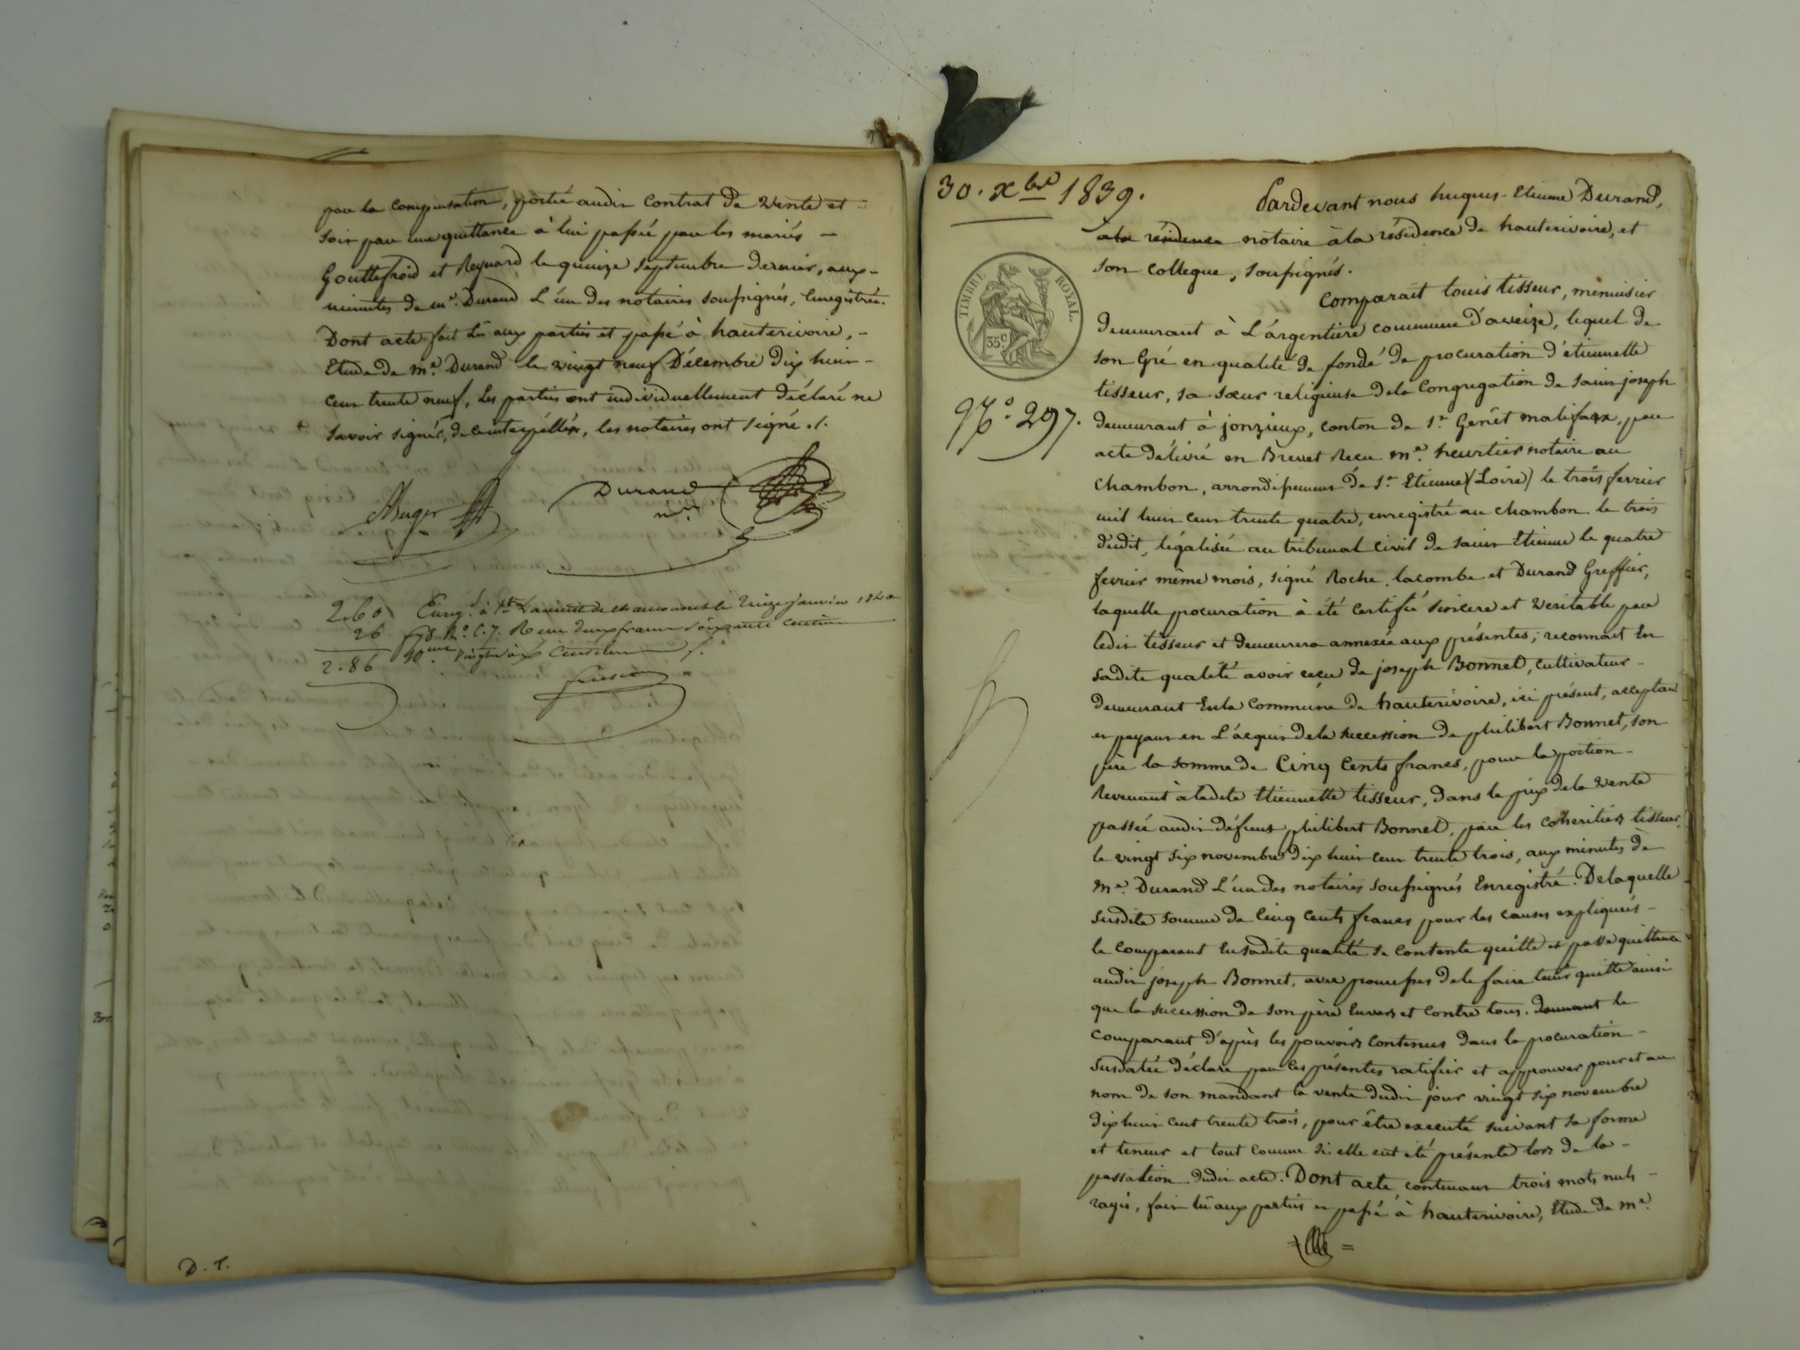 par la compensation, portée audit contrat de vente et
soit par une quittance à lui passée par les mariés —
Gouttefroid et Reynard le quinze septembre dernier, aux-
minutes de me. Durand L'un des notaires soussignés, Enregistrée.
Dont acte fait lu aux parties et passé à hauterivoire, -
Etude de me. Durand le vingt neuf Décembre dix huit -
cent trente neuf, Les parties ont individuellement déclaré ne
savoir signer, de ce interpellées, les notaires ont signé ./.
Durand
nre
2.60
26
2.86
Enreg. à St. Laurent de chamousset le quinze janvier 1840
Reçu deux francs soixante centimes
10me vingt six centimes
D. T.
30. Xbre 1839.
TIMBRE ROYAL.
35c
No. 297.
Pardevant nous hugues-Etienne Durand,
a la résidence notaire à la résidence de hauterivoire, et
son collegue, soussignés.
Comparait Louis tisseur, menuisier
demeurant à L'argentière commune d'aveize, lequel de
son Gré en qualité de fondé de procuration d'étiennette
tisseur, sa sœur religieuse de la Congregation de saint joseph
demeurant à jonzieux, canton de St Genêt malifaux, par
acte délivré en Brevet Reçu me. heurtier notaire au
Chambon, arrondissement de St Etienne (Loire) le trois fevrier
mil huit cent trente quatre, enregistré au chambon le trois
dudit, légalisée au tribunal civil de saint Etienne le quatre
fevrier même mois, signé Roche, lacombe et Durand Greffier,
laquelle procuration à été certifié sincere et veritable par
ledit tisseur et demeurera annexée aux présentes; reconnait En
sadite qualité avoir reçu de joseph Bonnet, cultivateur -
demeurant En la Commune de hauterivoire, ici présent, acceptant
et payant en L'acquit de la succession de philibert Bonnet, son
père la somme de Cinq Cents francs, pour la portion -
Revenant à ladite Etiennette tisseur, dans le prix de la vente
passée audit défunt philibert Bonnet, par les cohéritiers tisseur,
le vingt six novembre dix huit cent trente trois, aux minutes de
me. Durand L'un des notaires soussignés Enregistré. De laquelle
susdite somme de Cinq Cents francs pour les causes expliquées -
le Comparant En sadite qualité se contente quitte et passe quittance
audit joseph Bonnet, avec promesses de le faire tenir quitte ainsi
que la succession de son père Envers et Contre tous. Donnant le
comparant d'après les pouvoirs contenus dans la procuration -
susdatée déclare par les présentes ratifier et approuver pour et au
nom de son mandant la vente dudit jour vingt six novembre
dix huit cent trente trois, pour être executé suivant sa forme
et teneur et tout comme si elle eut été présente lors de la -
passation dudit acte. Dont acte contenant trois mots nuls -
rayés, fait lu aux parties et passé à hauterivoire, Etude de me.